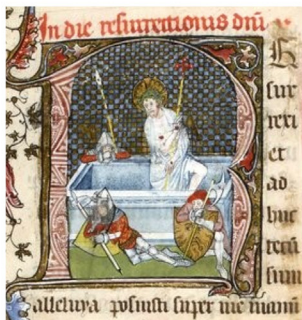 In die resurrectionis dñi
R E
sur
rexi
et
ad
huc
tecū
sum
alleluya posuisti super me manū